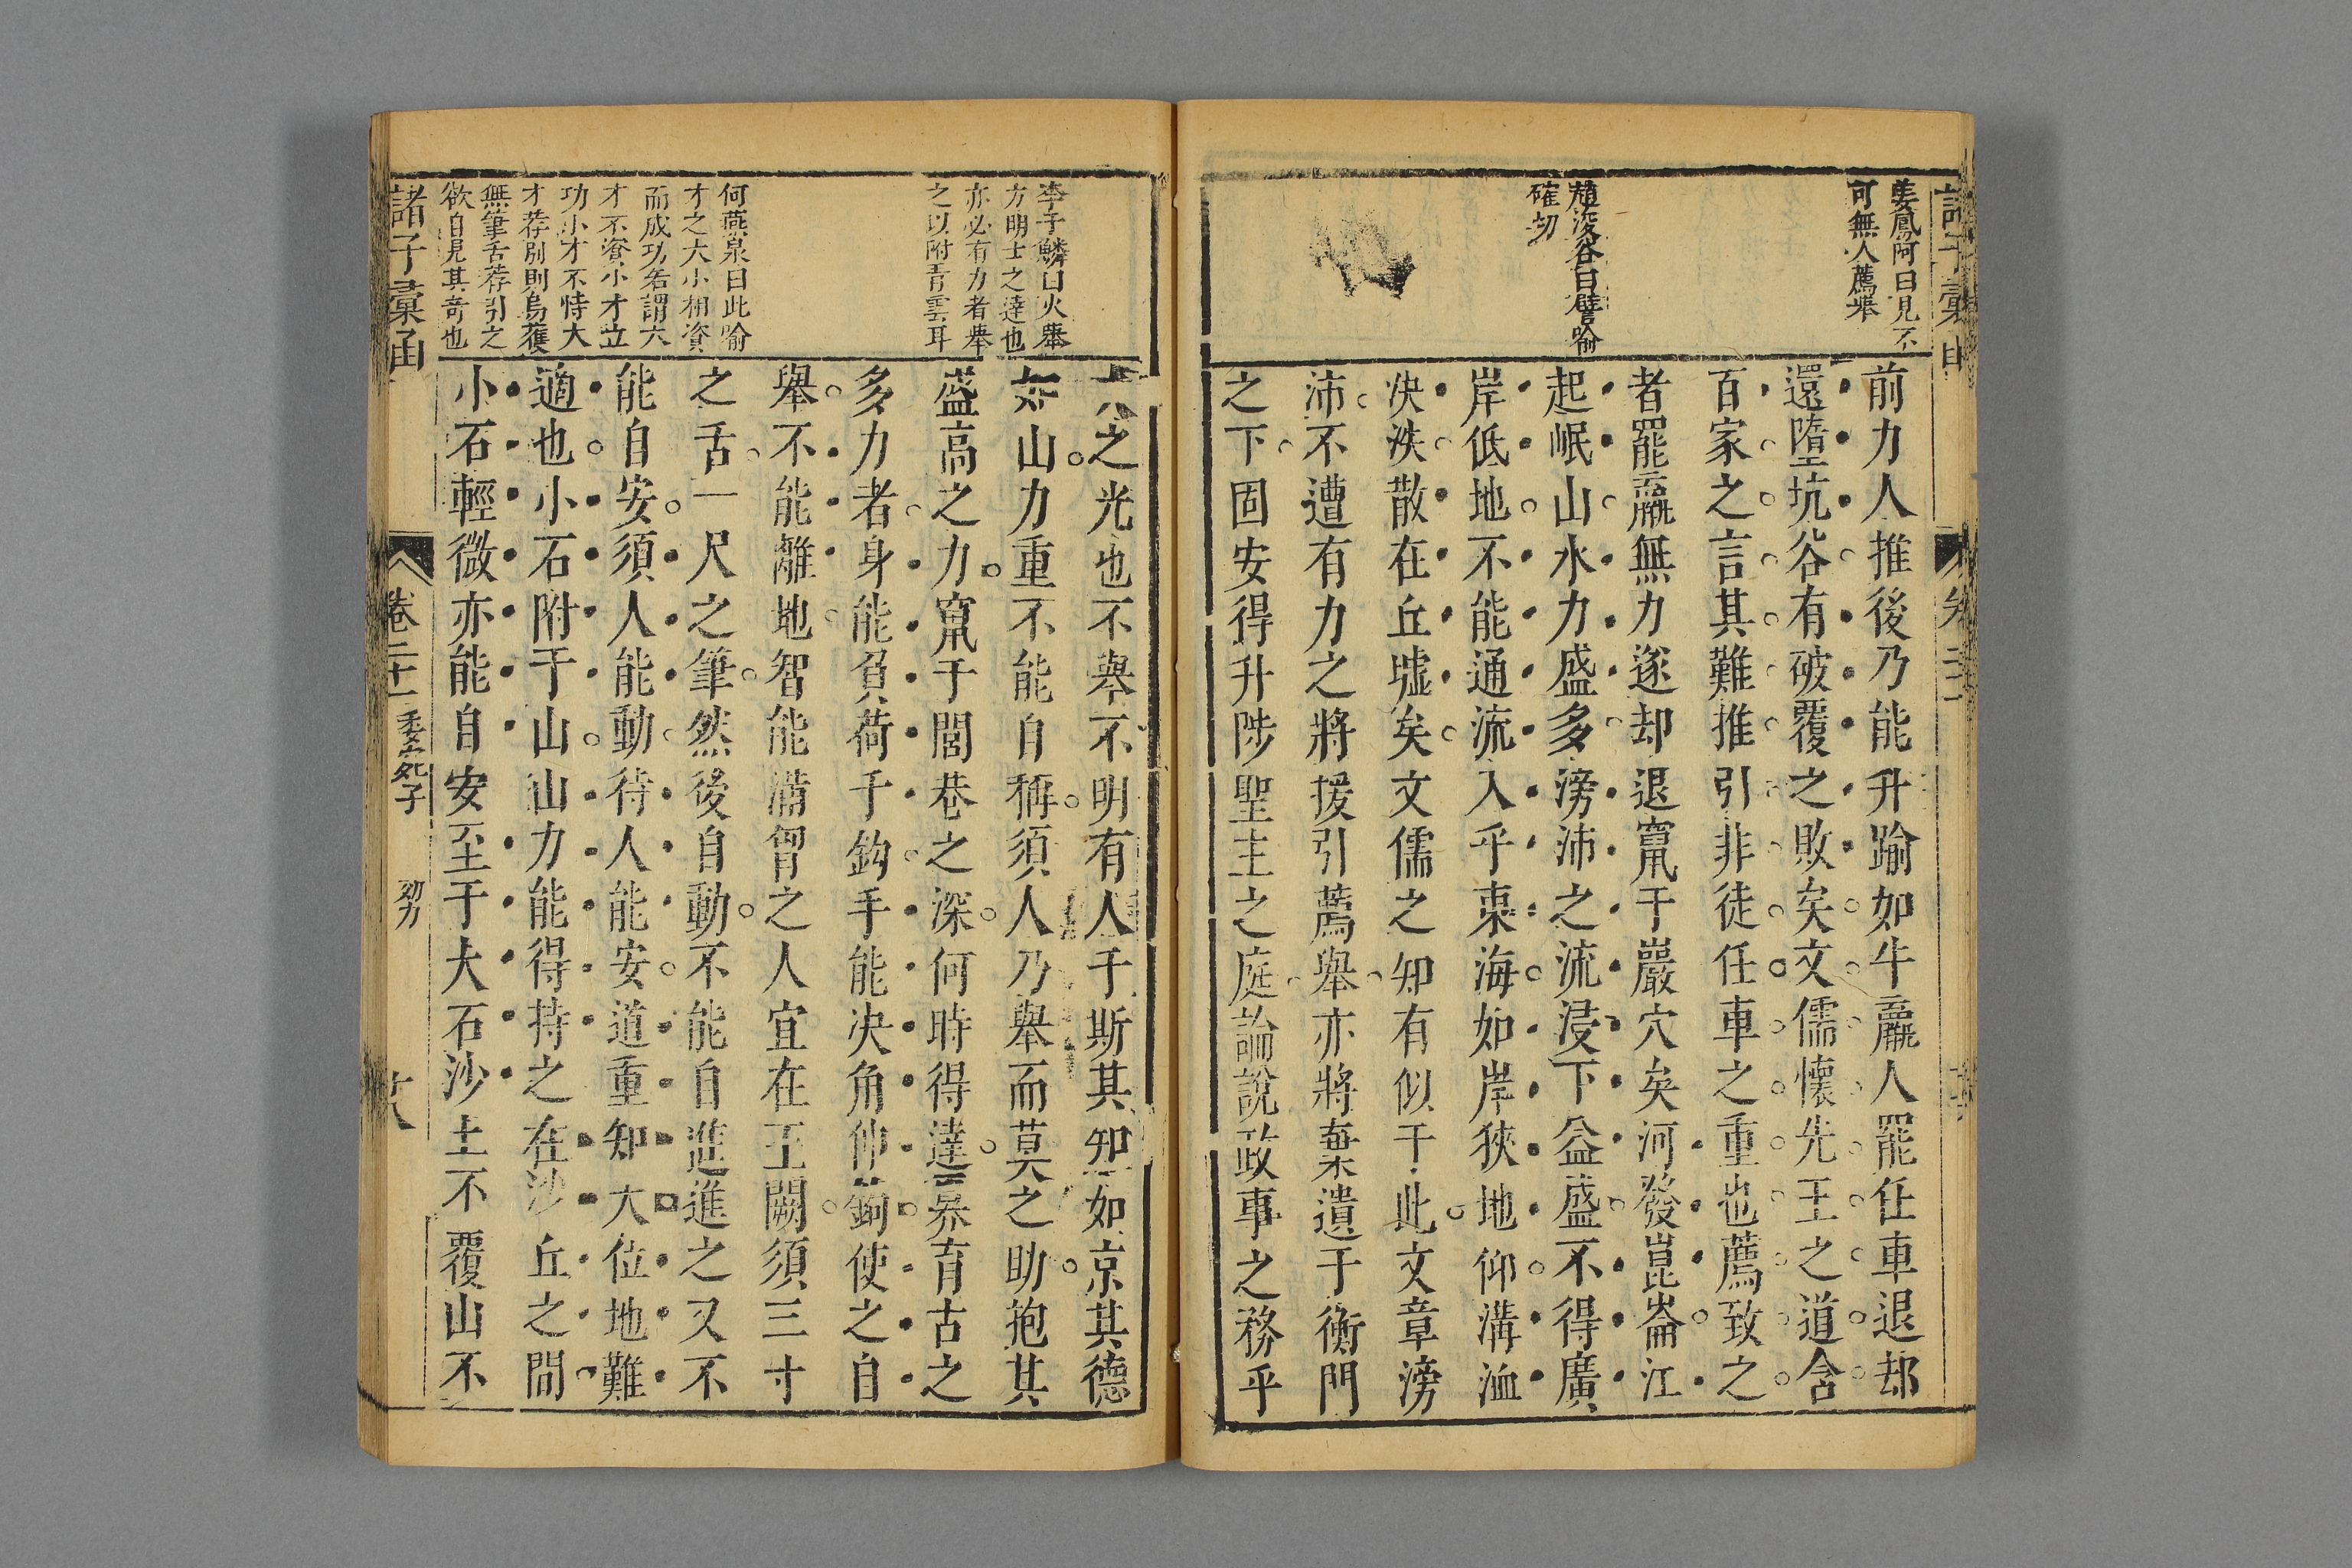 姜鳳阿曰見不
可無人薦舉
趙浚谷曰譬喻
確切
前力人推後乃能升踰如牛羸人罷任車退却
還墮坑谷有破覆之敗矣文儒懷先王之道含
百家之言其難推引非徒任車之重也薦致之
者罷羸無力遂却退竄于巖穴矣河發崑崙江
起岷山水力盛多滂沛之流浸下益盛不得廣
岸低地不能通流入乎東海如岸狹地仰溝洫
决泆散在丘墟矣文儒之知有似于此文章滂
沛不遭有力之將援引薦舉亦將棄遺于衡門
之下固安得升陟聖主之庭論說政事之務乎
李子鱗曰火舉
方明士之達也
亦必有力者舉
之以附青雲耳
何燕泉曰此喻
才之大小相資
而成功若謂大
才不資小才立
功小才不恃大
才荐別則烏獲
無筆舌荐引之
欲自見其奇也
火之光也不舉不明有人于斯其知如京其德
如山力重不能自稱須人乃舉而莫之助抱其
盛高之力竄于閭巷之深何時得達奡育古之
多力者身能負荷千鈞手能决角伸鉤使之自
舉不能離地智能滿胷之人宜在王闕須三寸
之舌一尺之筆然後自動不能自進進之又不
能自安須人能動待人能安道重知大位地難
適也小石附于山山力能得持之在沙丘之間
小石輕微亦能自安至于大石沙土不覆山不
諸子彙函
卷二十一
委宛子
効力
十八